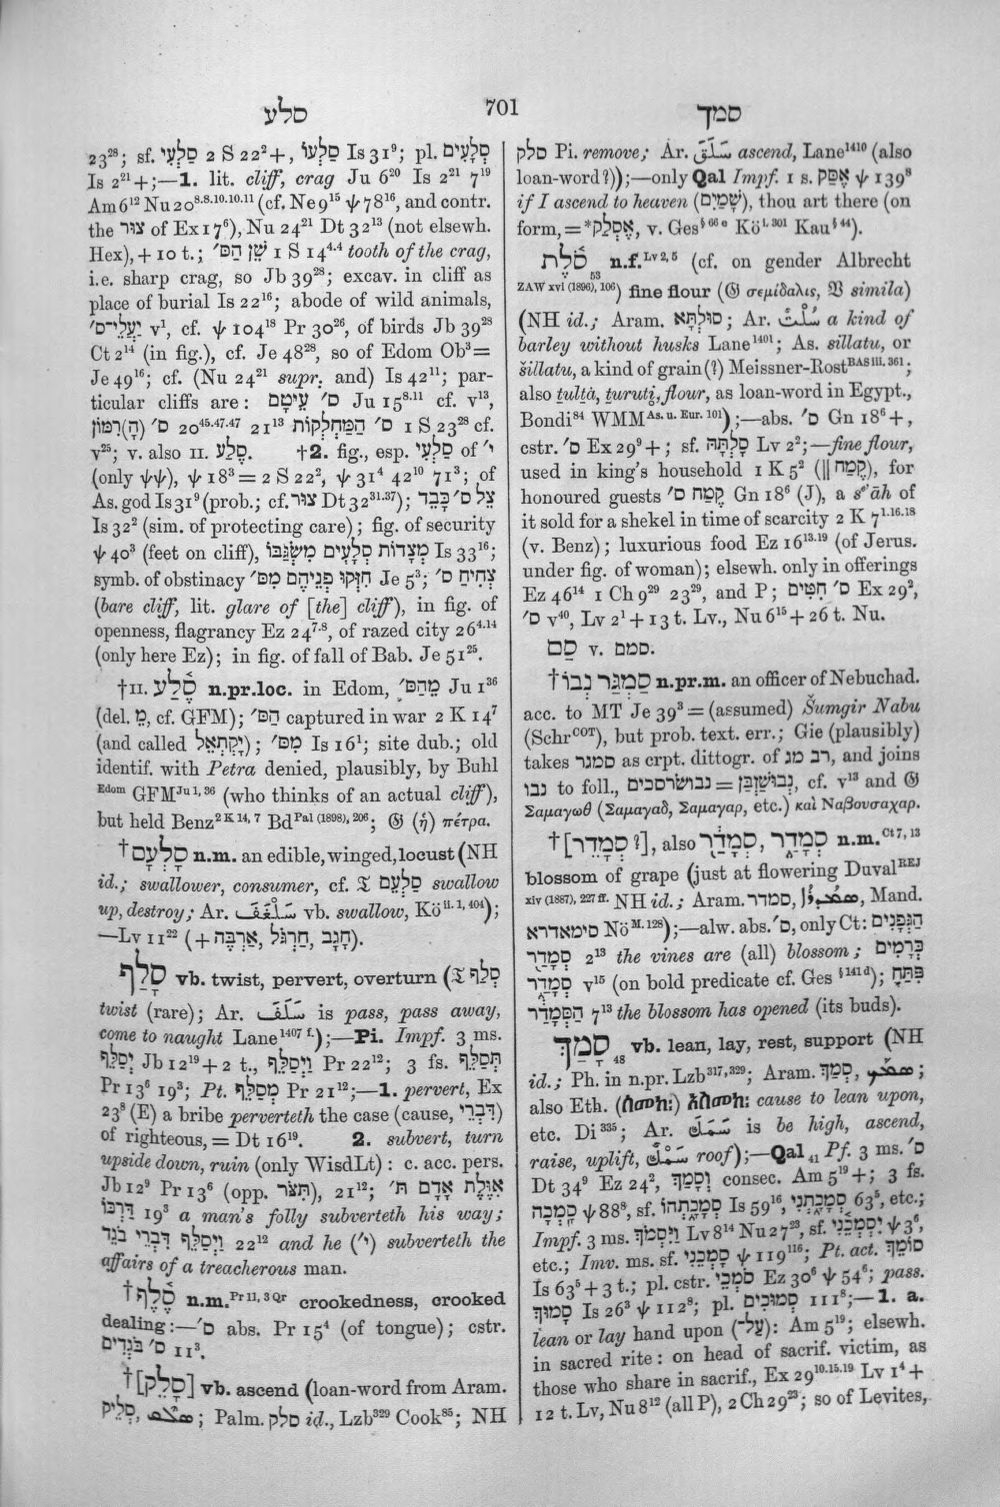 סלע
701
סמך
23²⁸; sf. סַלְעִי 2 S 22²+, סַלְעוֹ Is 31⁹; pl. סְלָעִים
Is 2²¹+;—1. lit. cliff, crag Ju 6²⁰ Is 2²¹ 7¹⁹
Am 6¹² Nu 20⁸·⁸·¹⁰·¹⁰·¹¹ (cf. Ne 9¹⁵ ψ 78¹⁶, and contr.
the צוּר of Ex 17⁶), Nu 24²¹ Dt 32¹³ (not elsewh.
Hex), + 10 t.; שֵׁן הַסּ׳ 1 S 14⁴·⁴ tooth of the crag,
i.e. sharp crag, so Jb 39²⁸; excav. in cliff as
place of burial Is 22¹⁶; abode of wild animals,
יַעֲלֵי־ס׳ v¹, cf. ψ 104¹⁸ Pr 30²⁶, of birds Jb 39²⁸
Ct 2¹⁴ (in fig.), cf. Je 48²⁸, so of Edom Ob³ =
Je 49¹⁶; cf. (Nu 24²¹ supr. and) Is 42¹¹; par-
ticular cliffs are: ס׳ עֵיטָם Ju 15⁸·¹¹ cf. v¹³,
ס׳ (הָ)רִמּוֹן 20⁴⁵·⁴⁷·⁴⁷ 21¹³ ס׳ הַמַּחְלְקוֹת 1 S 23²⁸ cf.
v²⁵; v. also II. סֶלַע. †2. fig., esp. סַלְעִי of י׳
(only ψψ), ψ 18³ = 2 S 22², ψ 31⁴ 42¹⁰ 71³; of
As. god Is 31⁹ (prob.; cf. צוּר Dt 32³¹·³⁷); צֵל ס׳ כָּבֵד
Is 32² (sim. of protecting care); fig. of security
ψ 40³ (feet on cliff), מְצָדוֹת סְלָעִים מִשְׂגַּבּוֹ Is 33¹⁶;
symb. of obstinacy חִזְּקוּ פְנֵיהֶם מִסּ׳ Je 5³; צְחִיחַ ס׳
(bare cliff, lit. glare of [the] cliff), in fig. of
openness, flagrancy Ez 24⁷·⁸, of razed city 26⁴·¹⁴
(only here Ez); in fig. of fall of Bab. Je 51²⁵.
†II. סֶלַע n.pr.loc. in Edom, מֵהַסּ׳ Ju 1³⁶
(del. מֵ, cf. GFM); הַסּ׳ captured in war 2 K 14⁷
(and called יָקְתְאֵל); מִסּ׳ Is 16¹; site dub.; old
identif. with Petra denied, plausibly, by Buhl
Edom GFM Ju 1, 36 (who thinks of an actual cliff),
but held Benz 2 K 14, 7 Bd Pal (1898), 206; 𝔊 (ἡ) πέτρα.
†סָלְעָם n.m. an edible, winged, locust (NH
id.; swallower, consumer, cf. 𝔗 סַלְעֵם swallow
up, destroy; Ar. سَلْغَفَ vb. swallow, Kö ii. 1, 404);
—Lv 11²² (+ אַרְבֶּה, חַרְגֹּל, חָגָב).
סָלַף vb. twist, pervert, overturn (𝔗 סְלַף
twist (rare); Ar. سَلَفَ is pass, pass away,
come to naught Lane 1407 f.);—Pi. Impf. 3 ms.
יְסַלֵּף Jb 12¹⁹ + 2 t., וַיְסַלֵּף Pr 22¹²; 3 fs. תְּסַלֵּף
Pr 13⁶ 19³; Pt. מְסַלֵּף Pr 21¹²;—1. pervert, Ex
23⁸ (E) a bribe perverteth the case (cause, דִּבְרֵי)
of righteous, = Dt 16¹⁹. 2. subvert, turn
upside down, ruin (only WisdLt): c. acc. pers.
Jb 12⁹ Pr 13⁶ (opp. תִּצֹּר), 21¹²; אִוֶּלֶת אָדָם תּ׳
דַּרְכּוֹ 19³ a man's folly subverteth his way;
וַיְסַלֵּף דִּבְרֵי בֹגֵד 22¹² and he (י׳) subverteth the
affairs of a treacherous man.
†סֶלֶף n.m. Pr 11, 3 Qr crookedness, crooked
dealing:—ס׳ abs. Pr 15⁴ (of tongue); cstr.
ס׳ בֹּגְדִים 11³.
†[סָלֵק] vb. ascend (loan-word from Aram.
סְלֵיק, ܣܠܩ; Palm. סלק id., Lzb³²⁹ Cook⁸⁵; NH
סלק Pi. remove; Ar. سَلَقَ ascend, Lane¹⁴¹⁰ (also
loan-word?));—only Qal Impf. 1 s. אֶסַּק ψ 139⁸
if I ascend to heaven (שָׁמַיִם), thou art there (on
form, = *אֶסְלַק, v. Ges § 66 e Kö i. 301 Kau § 44).
סֹלֶת n.f. Lv 2, 5 (cf. on gender Albrecht
53
ZAW xvi (1896), 106) fine flour (𝔊 σεμίδαλις, 𝔙 simila)
(NH id.; Aram. סוּלְתָּא; Ar. سُلْتٌ a kind of
barley without husks Lane¹⁴⁰¹; As. sillatu, or
šillatu, a kind of grain (?) Meissner-Rost BAS iii. 361;
also ṯulṯa, ṯuruṯi, flour, as loan-word in Egypt.,
Bondi⁸⁴ WMM As. u. Eur. 101);—abs. ס׳ Gn 18⁶+,
cstr. ס׳ Ex 29⁹+; sf. סָלְתָּהּ Lv 2²;—fine flour,
used in king's household 1 K 5² (|| קֶמַח), for
honoured guests קֶמַח ס׳ Gn 18⁶ (J), a sᵉ'āh of
it sold for a shekel in time of scarcity 2 K 7¹·¹⁶·¹⁸
(v. Benz); luxurious food Ez 16¹³·¹⁹ (of Jerus.
under fig. of woman); elsewh. only in offerings
Ez 46¹⁴ 1 Ch 9²⁹ 23²⁹, and P; ס׳ חִטִּים Ex 29²,
ס׳ v⁴⁰, Lv 2¹ + 13 t. Lv., Nu 6¹⁵ + 26 t. Nu.
סַם v. סמם.
†סַמְגַּר נְבוֹ n.pr.m. an officer of Nebuchad.
acc. to MT Je 39³ = (assumed) Šumgir Nabu
(Schr COT), but prob. text. err.; Gie (plausibly)
takes סמגר as crpt. dittogr. of רב מג, and joins
נבו to foll., נבושרסכים = נְבוּשַׁזְבָּן, cf. v¹³ and 𝔊
Σαμαγωθ (Σαμαγαδ, Σαμαγαρ, etc.) καὶ Ναβουσαχαρ.
†[סְמָדֵר ?], also סְמָדַר, סְמָדָר n.m. Ct 7, 13
blossom of grape (just at flowering Duval REJ
xiv (1887), 227 ff. NH id.; Aram. סמדר, Mand.
סימאדרא Nö M. 128);—alw. abs. ס׳, only Ct: הַגְּפָנִים
סְמָדַר 2¹³ the vines are (all) blossom; כְּרָמִים
סְמָדָר v¹⁵ (on bold predicate cf. Ges § 141 d); פִּתַּח
הַסְּמָדַר 7¹³ the blossom has opened (its buds).
סָמַךְ 48 vb. lean, lay, rest, support (NH
id.; Ph. in n.pr. Lzb³¹⁷,³²⁹; Aram. סְמַךְ, ܣܡܟ;
also Eth. (ሰመከ:) አስመከ: cause to lean upon,
etc. Di³³⁵; Ar. سَمَكَ is be high, ascend,
raise, uplift, سَمْكٌ roof);—Qal 41 Pf. 3 ms. ס׳
Dt 34⁹ Ez 24², וְסָמַךְ consec. Am 5¹⁹+; 3 fs.
סָמְכָה ψ 88⁸, sf. סְמָכָתְהוּ Is 59¹⁶, סְמָכָתְנִי 63⁵, etc.;
Impf. 3 ms. וַיִּסְמֹךְ Lv 8¹⁴ Nu 27²³, sf. יִסְמְכֵנִי ψ 3⁶,
etc.; Imv. ms. sf. סָמְכֵנִי ψ 119¹¹⁶; Pt. act. סוֹמֵךְ
Is 63⁵ + 3 t.; pl. cstr. סֹמְכֵי Ez 30⁶ ψ 54⁶; pass.
סָמוּךְ Is 26³ ψ 112⁸; pl. סְמוּכִים 111⁸;—1. a.
lean or lay hand upon (עַל־): Am 5¹⁹; elsewh.
in sacred rite: on head of sacrif. victim, as
those who share in sacrif., Ex 29¹⁰·¹⁵·¹⁹ Lv 1⁴ +
12 t. Lv, Nu 8¹² (all P), 2 Ch 29²³; so of Levites,